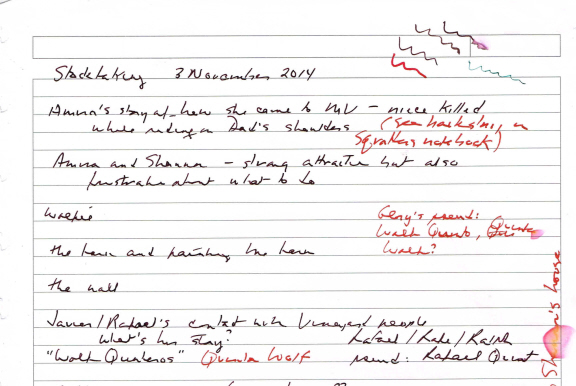 Stocktaking 3 November 2014
Amina's story of how she came to MV – niece killed
while riding on Dad's shoulders (see backstory in
Squatters notebook)
Amina and Shannon – strong attraction but also
frustration about what to do
Walkie
Geny's pseud:
Walt Quanto,
Walt?
the barn and painting the barn
the wall
Javier/Rafael's contact with Vineyard people
What's his story? Rafael/Rafe/Ralph
"Wolth Quateros" Quanta Wolf pseud: Rafael Quant
's house